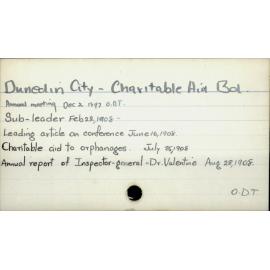 Dunedin City - Charitable Aid Bd.
Annual meeting Dec 2 1897 O.D.T.
Sub-leader Feb 28, 1908 -
Leading article on conference June 16, 1908.
Charitable aid to orphanages. July 25, 1908
Annual report of Inspector-general - Dr. Valentine Aug 28, 1908.
O.D.T